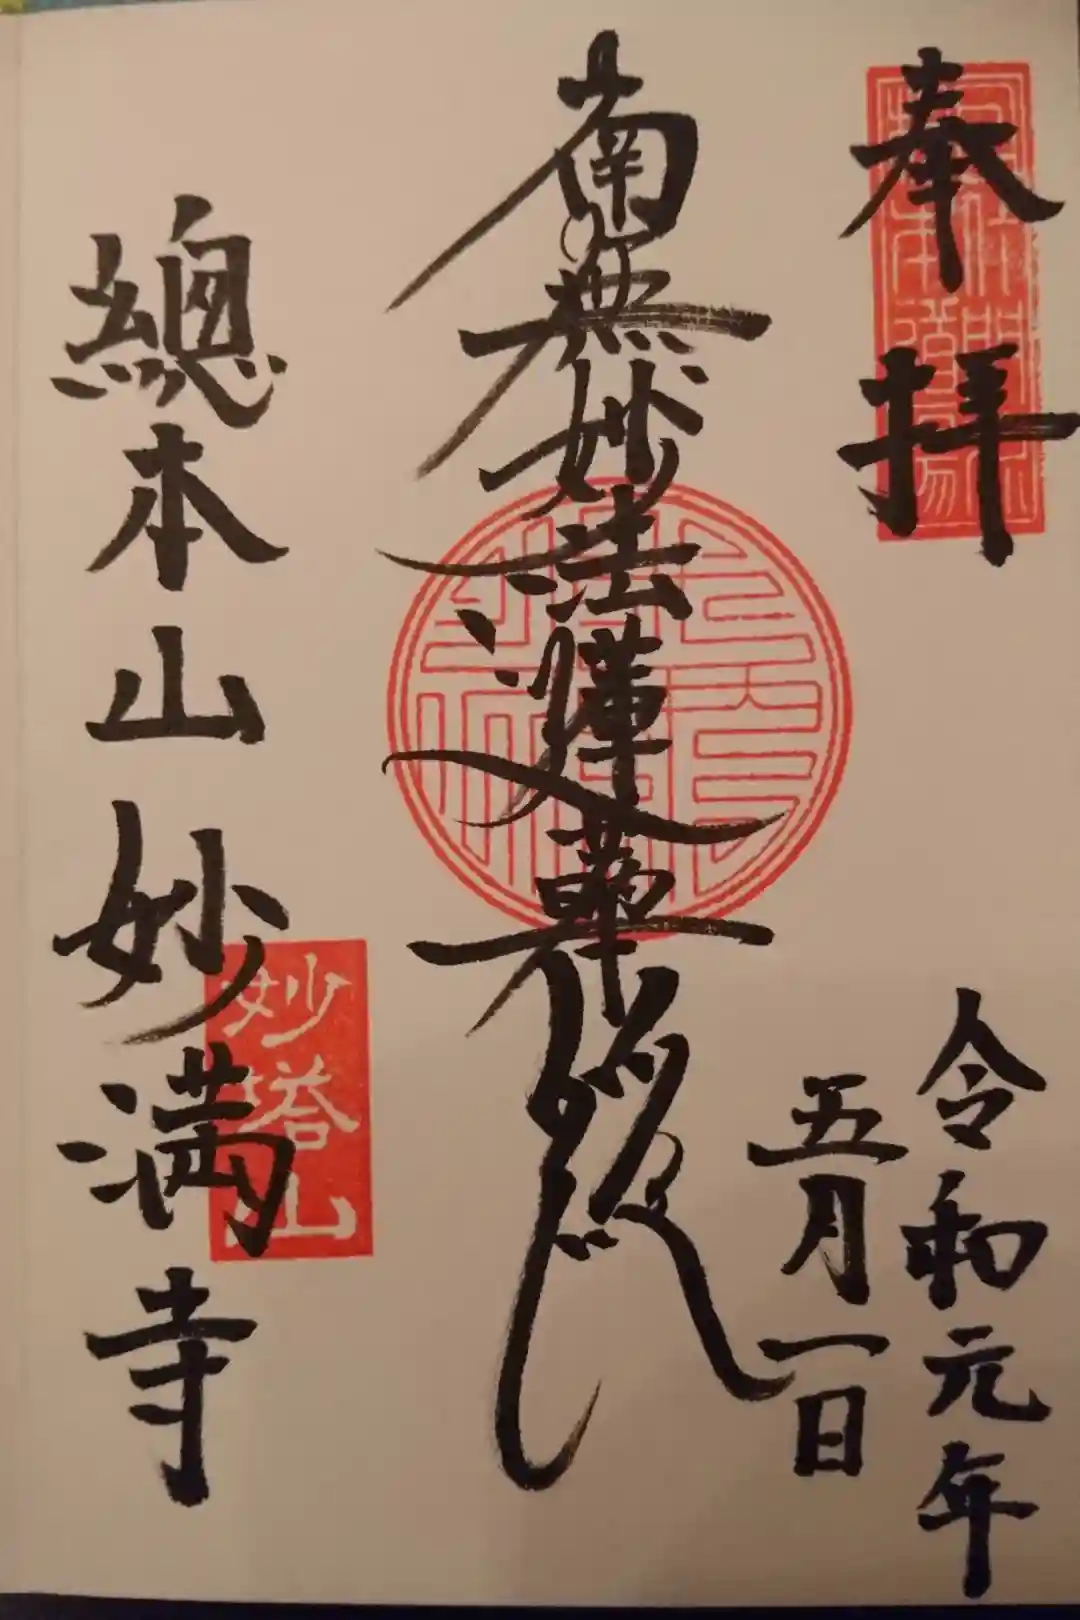 奉拝
令和元年
五月一日
南無妙法蓮華経
總本山妙満寺
妙塔山